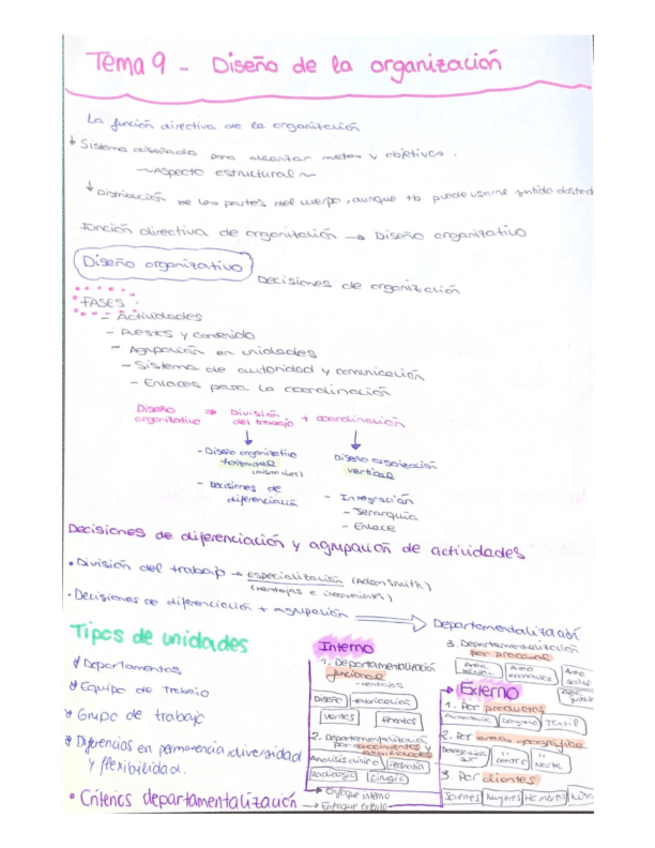 Tema 9 - Diseño de la organización
La función directiva de la organización
Sistema diseñado para alcanzar metas y objetivos.
~Aspecto estructural~
Distribución de las partes del cuerpo, aunque tb puede usarse
Función directiva de organización → Diseño organizativo
Diseño organizativo
Decisiones de organización
FASES
- Actividades
- Puestos y contenido
- Agrupación en unidades
- Sistema de autoridad y comunicación
- Enlaces para la coordinación
Diseño organizativo ⇒ División del trabajo + coordinación
- Diseño organizativo horizontal
- Decisiones de diferenciación
Diseño organización vertical
- Integración
- Jerarquía
- Enlace
Decisiones de diferenciación y agrupación de actividades
• División del trabajo → especialización (Adam Smith)
(ventajas e inconvenients)
• Decisiones de diferenciación + agrupación ⇒ Departamentalización
Tipos de unidades
Departamentos
Equipo de Trabajo
Grupo de trabajo
Diferencias en permanencia, diversidad
y flexibilidad.
• Criterios departamentalización
→ Enfoque interno
→ Enfoque
Interno
1. Departamentalización
funcional
- ventajas
Diseño
Fabricación
Ventas
2. Departamentalización
por conocimientos y
Análisis clínico
Radiología
Cirugía
3. Departamentalización
por procesos
Área
Área
económica
Área
social
Externo
1. Por productos
Textil
2. Por áreas geográfica
Delegación
sur
" centro
" Norte
3. Por clientes
Jóvenes
Mujeres
Hombres